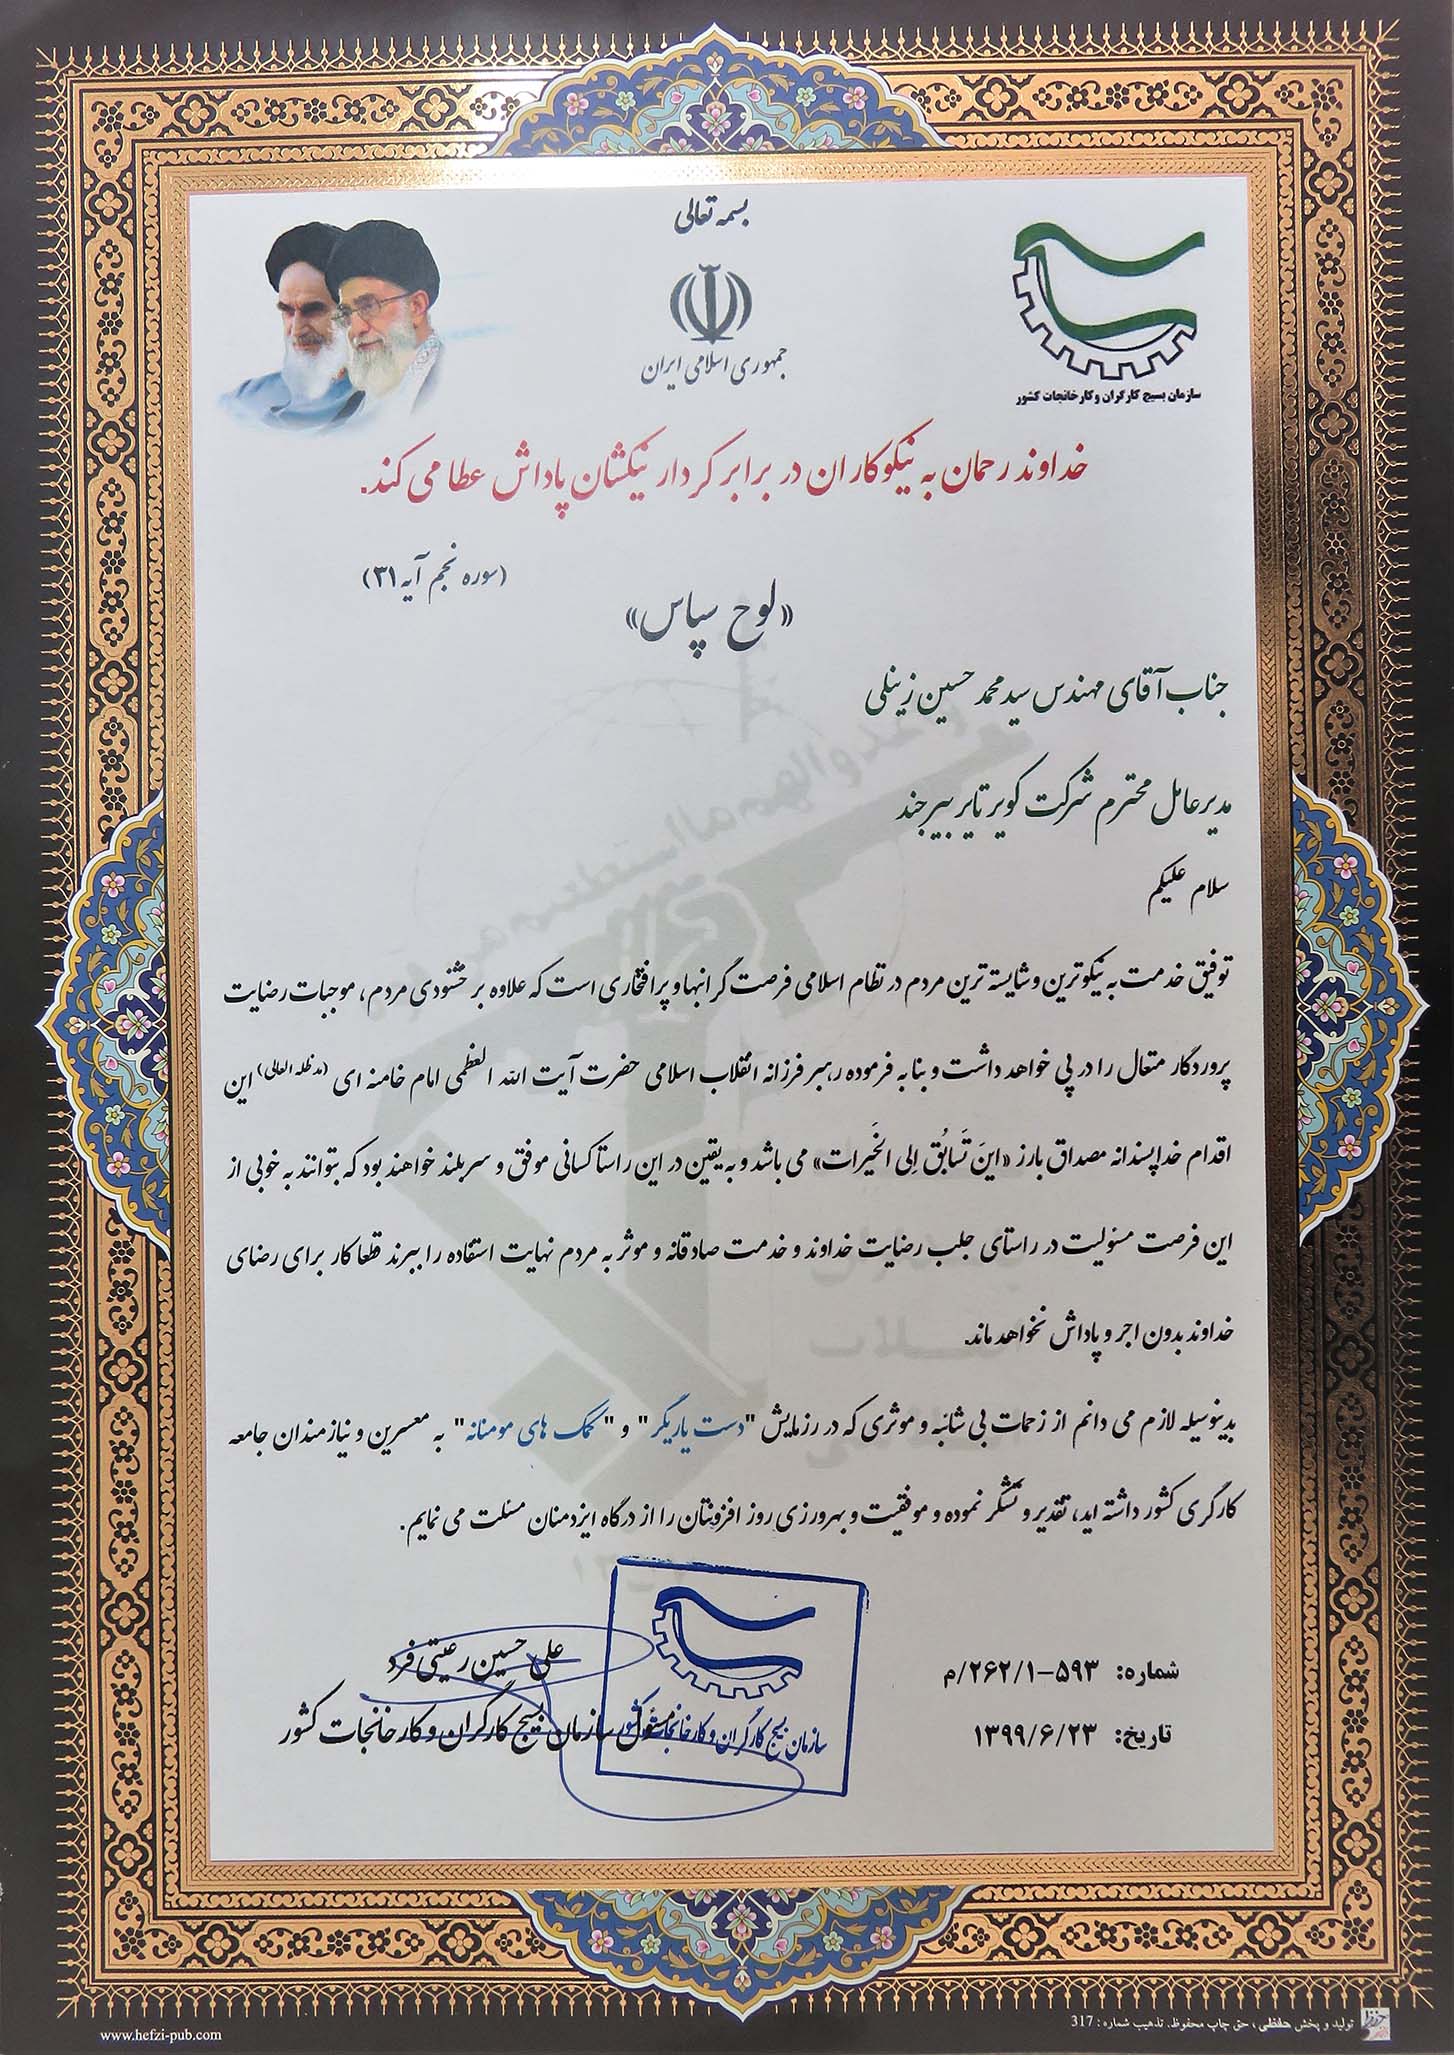 بسمه تعالی
جمهوری اسلامی ایران
سازمان بسیج کارگران و کارخانجات کشور
خداوند رحمان به نیکوکاران در برابر کردار نیکشان پاداش عطا می کند.
(سوره نجم آیه ۳۱)
«لوح سپاس»
جناب آقای مهندس سید محمد حسین زینلی
مدیرعامل محترم شرکت کویر تایر بیرجند
سلام علیکم
توفیق خدمت به نیکوترین و شایسته ترین مردم در نظام اسلامی فرصت گرانبها و پرافتخاری است که علاوه بر خشنودی مردم، موجبات رضایت
پروردگار متعال را در پی خواهد داشت و بنا به فرموده رهبر فرزانه انقلاب اسلامی حضرت آیت الله العظمی امام خامنه ای (مدظله العالی) این
اقدام خداپسندانه مصداق بارز «اینَ تَسابُق اِلی الخَیرات» می باشد و به یقین در این راستا کسانی موفق و سربلند خواهند بود که بتوانند به خوبی از
این فرصت مسئولیت در راستای جلب رضایت خداوند و خدمت صادقانه و موثر به مردم نهایت استفاده را ببرند قطعا کار برای رضای
خداوند بدون اجر و پاداش نخواهد ماند.
بدینوسیله لازم می دانم از زحمات بی شائبه و موثری که در رزمایش "دست یاریگر" و "کمک های مومنانه" به معسرین و نیازمندان جامعه
کارگری کشور داشته اید، تقدیر و تشکر نموده و موفقیت و بهروزی روز افزونتان را از درگاه ایزدمنان مسئلت می نمایم.
شماره: ۵۹۳-۲۶۲/۱/م
تاریخ: ۱۳۹۹/۶/۲۳
علی حسین رعیتی فرد
مسئول سازمان بسیج کارگران و کارخانجات کشور
سازمان بسیج کارگران و کارخانجات کشور
تولید و پخش حفظی، حق چاپ محفوظ. تذهیب شماره: 317
www.hefzi-pub.com